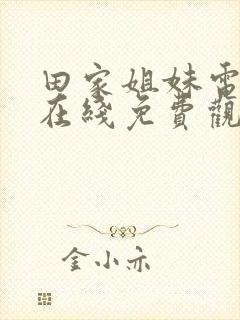 田家姐妹電
在綫免費觀
金小亦